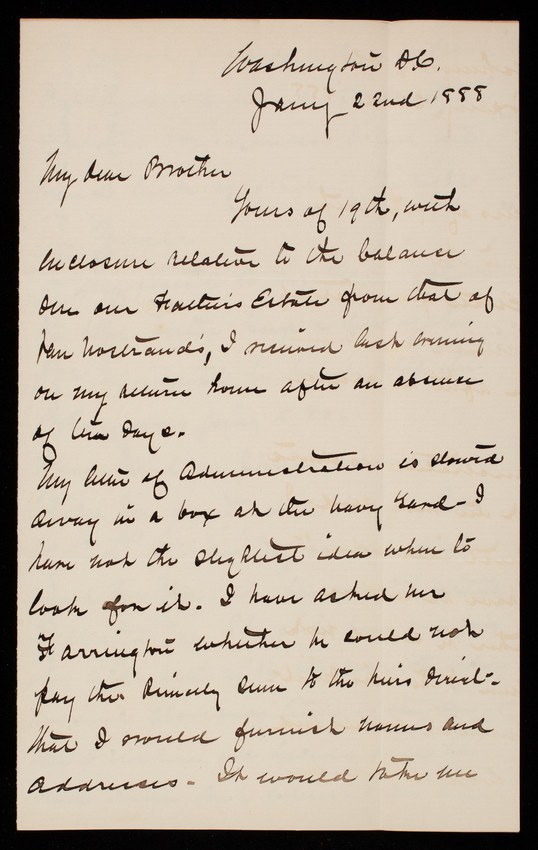 Washington D.C.
Jany 22nd 1888
My dear Brother
Yours of 19th, with
enclosure relative to the balance
due our Father's Estate from that of
Van Nostrand's, I received last evening
on my return home after an absence
of ten days.
My letter of Administration is stowed
away in a box at the Navy Yard - I
have not the slightest idea where to
look for it. I have asked Mr
Farrington whether he could not
pay the sum to the heirs direct -
that I would furnish names and
addresses - It would take me